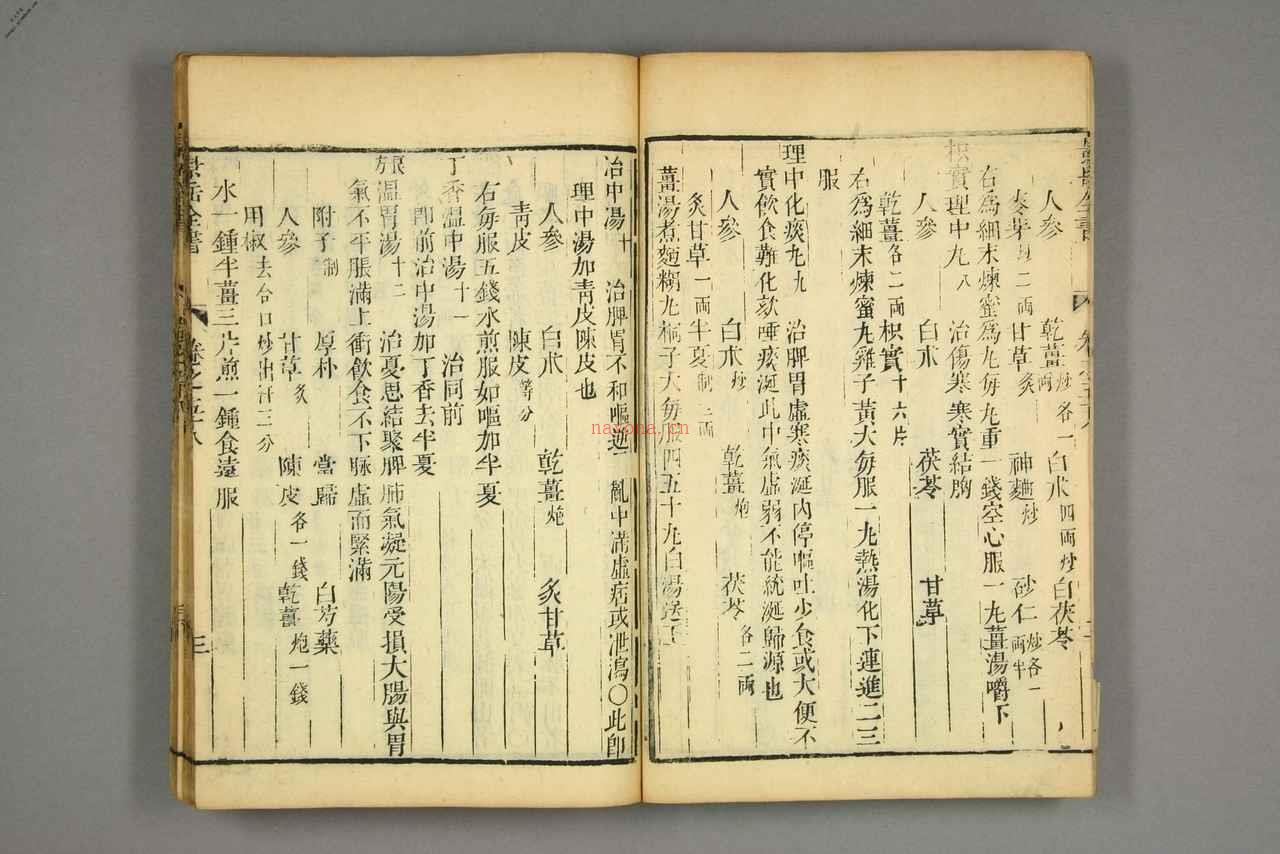 人參 乾薑炒各一両 白朮四両炒 白茯苓
麥芽炒二両 甘草炙 神麯炒 砂仁炒各一両半
右爲細末煉蜜爲丸每丸重一錢空心服一丸薑湯嚼下
枳實理中丸八 治傷寒寒實結胸
人參 白朮 茯苓 甘草
乾薑各二両 枳實十六片
右爲細末煉蜜丸雞子黃大每服一丸熱湯化下連進二三
服
理中化痰丸九 治脾胃虛寒痰涎內停嘔吐少食或大便不
實飲食難化欬唾痰涎此中氣虛弱不能統涎歸源也
人參 白朮炒 乾薑炮 茯苓各二両
炙甘草一両 半夏制三両
薑湯煮麵糊丸桐子大每服四五十丸白湯送下
治中湯十 治脾胃不和嘔逆 亂中滿虛病或泄瀉○此即
理中湯加青皮陳皮也
人參 白朮 乾薑炮 炙甘草
青皮 陳皮等分
右每服五錢水煎服如嘔加半夏
丁香溫中湯十一 治同前
即前治中湯加丁香去半夏
溫胃湯十二 治憂思結聚脾肺氣凝元陽受損大腸與胃
氣不平脹滿上衝飲食不下脉虛而緊滿
附子制 厚朴 當歸 白芍藥
人參 甘草炙 陳皮各一錢 乾薑炮一錢
川椒去合口炒出汗三分
水一鍾半薑三片煎一鍾食遠服
景岳全書 卷之五十八 三
nayona.cn